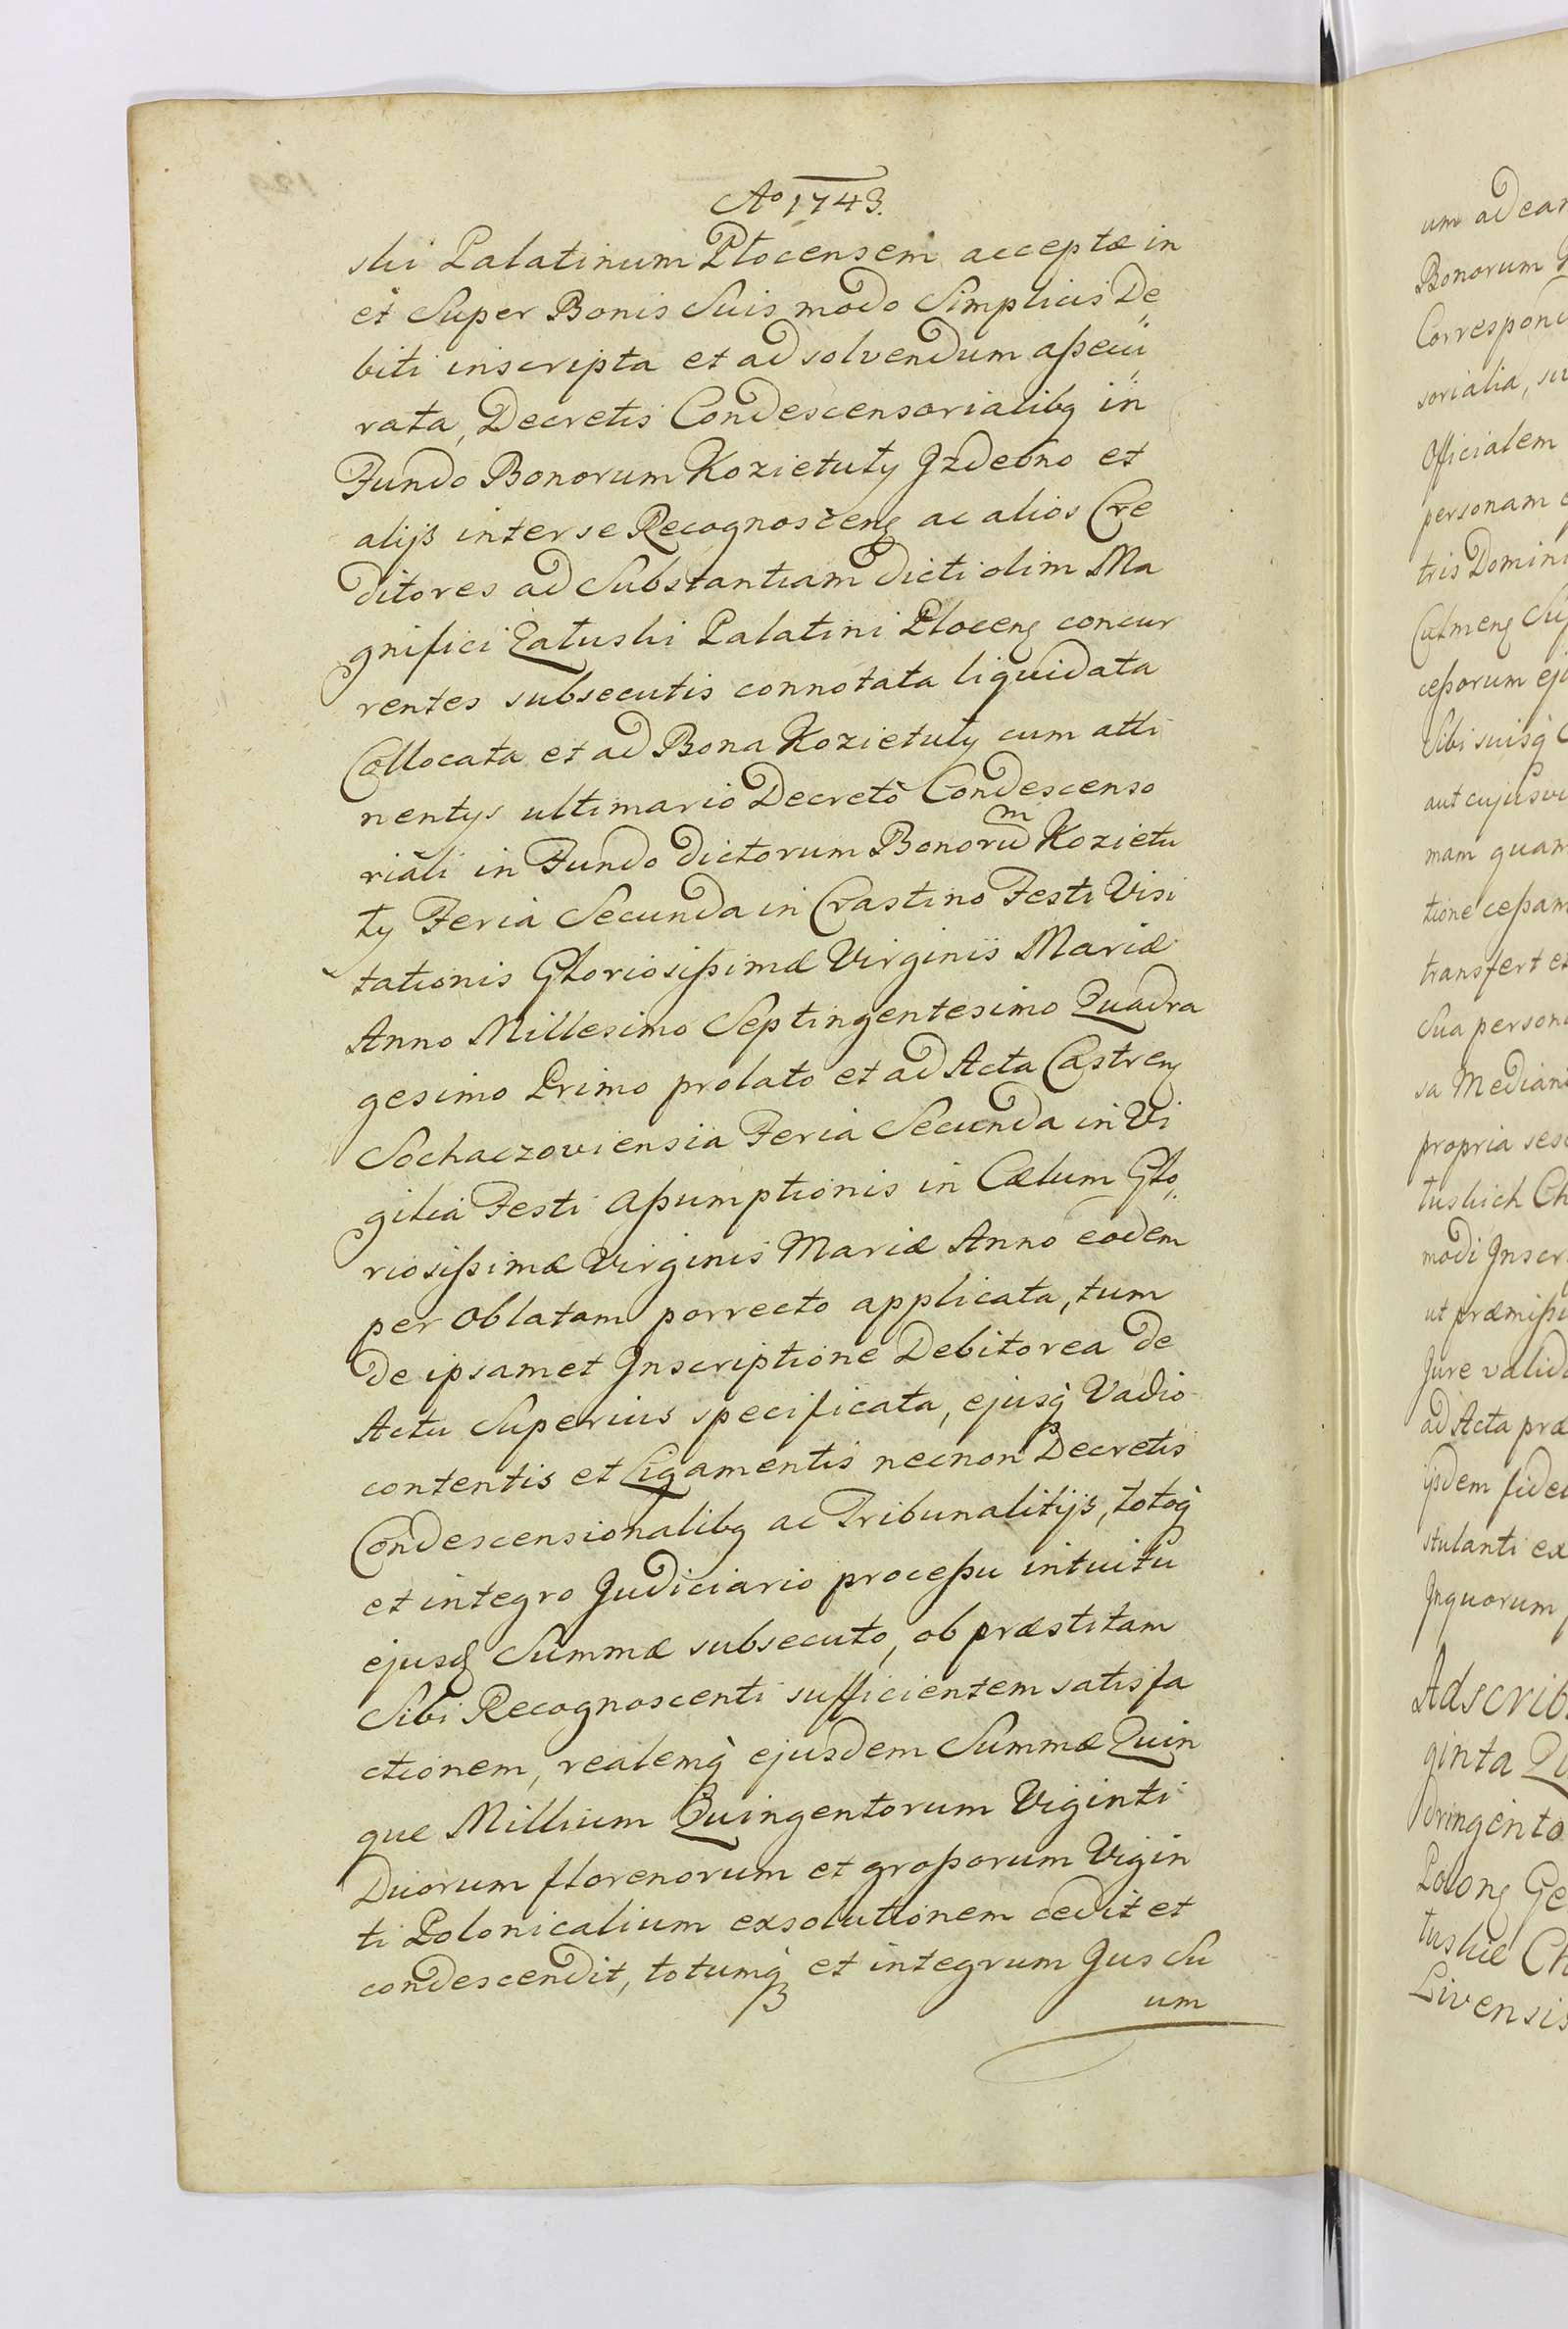 Ao 1743.
ski Palatinum Plocensem acceptæ in
et Super Bonis Suis modo Simplicis De„
biti inscripta et ad solvendum aßecu„
rata, Decretis Condescensorialibq in
Fundo Bonorum Kozietuły Jzdebno et
alijs inter se Recognoscenq ac alios Cre
ditores ad Substantiam dicti olim Ma
gnifici Załuski Palatini Plocenq concur
rentes subsecutis connotata liquidata
Collocata et ad Bona Kozietuły cum atti
nentys ultimario Decreto Condescenso
riali in Fundo dictorum Bonorum Kozietu
ły Feria Secunda in Crastino Festi Visi
tationis Gloriosißimæ Virginis Mariæ
Anno Millesimo Septingentesimo Quadra
gesimo Primo prolato et ad Acta Castrenq
Sochaczoviensia Feria Secunda in Vi
gilia Festi Aßumptionis in Cælum Glo„
riosißimæ Virginis Mariæ Anno eodem
per Oblatam porrecto applicata, tum
de ipsamet Jnscriptione Debitorea de
Actu Superius specificata, ejusq Vadio
contentis et Ligamentis necnon Decretis
Condescensionalibq ac Tribunalitijs, totoq
et integro Judiciario proceßu intuitu
ejusd Summæ subsecuto, ob præstitam
Sibi Recognoscenti sufficientem satisfa
ctionem, realemq ejusdem Summæ Quin
que Millium Quingentorum Viginti
Duorum florenorum et großorum Vigin
ti Polonicalium exsolutionem cedit et
condescendit, totumq et integrum Jus Su
um
um ad ea
Bonorum
Correspon
sorialia, su
Officialem
personam
tris Domin
Culmenq Su
ceßorum ej
Sibi suisq
aut cujusvi
mam quam
tione ceßam
transfert et
Sua person
sa Median
propria ses
tuskich Ch
modi Jnscr
ut præmißi
Jure valid
ad Acta præ
ijsdem fide
stulanti ex
Jnquorum
Adscrib
ginta Qu
dringento
Polonq Ge
tuskie Ch
Livensis